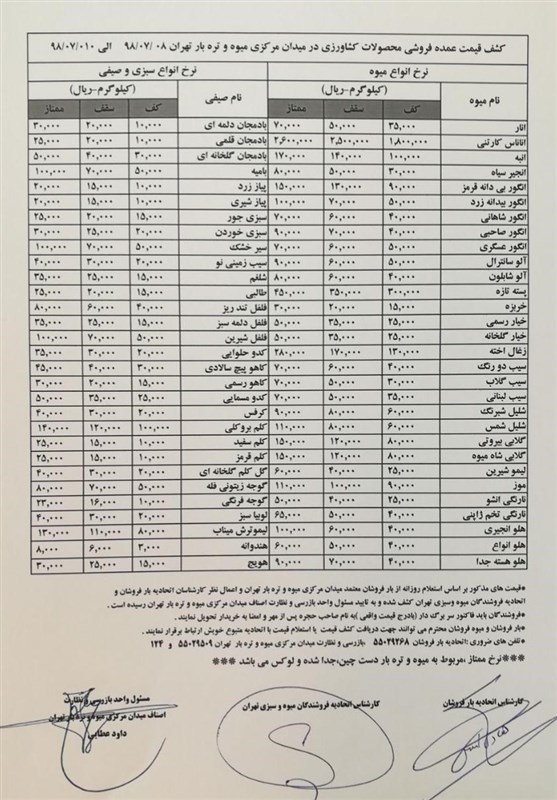 کشف قیمت عمده فروشی محصولات کشاورزی در میدان مرکزی میوه و تره بار تهران ۹۸/۰۷/۰۸ الی ۹۸/۰۷/۰۱۰
نرخ انواع میوه نرخ انواع سبزی و صیفی
نام میوه (کیلوگرم-ریال) نام صیفی (کیلوگرم-ریال)
کف سقف ممتاز کف سقف ممتاز
انار ۳۵,۰۰۰ ۵۰,۰۰۰ ۷۰,۰۰۰ بادمجان دلمه ای ۱۰,۰۰۰ ۲۰,۰۰۰ ۳۰,۰۰۰
اناناس کارتنی ۱,۸۰۰,۰۰۰ ۲,۵۰۰,۰۰۰ ۲,۶۰۰,۰۰۰ بادمجان قلمی ۱۰,۰۰۰ ۲۰,۰۰۰ ۲۵,۰۰۰
انبه ۱۰۰,۰۰۰ ۱۴۰,۰۰۰ ۱۷۰,۰۰۰ بادمجان گلخانه ای ۳۰,۰۰۰ ۴۰,۰۰۰ ۵۰,۰۰۰
انجیر سیاه ۳۰,۰۰۰ ۵۰,۰۰۰ ۸۰,۰۰۰ بامیه ۵۰,۰۰۰ ۷۰,۰۰۰ ۱۰۰,۰۰۰
انگور بی دانه قرمز ۹۰,۰۰۰ ۱۳۰,۰۰۰ ۱۵۰,۰۰۰ پیاز زرد ۱۰,۰۰۰ ۱۵,۰۰۰ ۲۰,۰۰۰
انگور بیدانه زرد ۵۰,۰۰۰ ۷۰,۰۰۰ ۱۰۰,۰۰۰ پیاز شیری ۱۰,۰۰۰ ۱۵,۰۰۰ ۲۰,۰۰۰
انگور شاهانی ۴۰,۰۰۰ ۶۰,۰۰۰ ۷۰,۰۰۰ سبزی جور ۱۵,۰۰۰ ۲۰,۰۰۰ ۲۵,۰۰۰
انگور صاحبی ۴۰,۰۰۰ ۷۰,۰۰۰ ۹۰,۰۰۰ سبزی خوردن ۲۰,۰۰۰ ۲۵,۰۰۰ ۳۰,۰۰۰
انگور عسگری ۵۰,۰۰۰ ۷۰,۰۰۰ ۹۰,۰۰۰ سیر خشک ۵۰,۰۰۰ ۷۰,۰۰۰ ۱۰۰,۰۰۰
آلو سانترال ۵۰,۰۰۰ ۶۰,۰۰۰ ۷۰,۰۰۰ سیب زمینی نو ۲۰,۰۰۰ ۳۰,۰۰۰ ۴۰,۰۰۰
آلو شابلون ۴۰,۰۰۰ ۶۰,۰۰۰ ۸۰,۰۰۰ شلغم ۱۵,۰۰۰ ۲۵,۰۰۰ ۳۵,۰۰۰
پسته تازه ۳۰۰,۰۰۰ ۳۵۰,۰۰۰ ۴۵۰,۰۰۰ طالبی ۱۵,۰۰۰ ۲۰,۰۰۰ ۲۵,۰۰۰
خربزه ۱۵,۰۰۰ ۲۰,۰۰۰ ۳۰,۰۰۰ فلفل تند ریز ۴۰,۰۰۰ ۶۰,۰۰۰ ۸۰,۰۰۰
خیار رسمی ۲۵,۰۰۰ ۳۵,۰۰۰ ۵۰,۰۰۰ فلفل دلمه سبز ۱۵,۰۰۰ ۲۵,۰۰۰ ۳۵,۰۰۰
خیار گلخانه ۲۵,۰۰۰ ۳۵,۰۰۰ ۵۰,۰۰۰ فلفل شیرین ۵۰,۰۰۰ ۷۰,۰۰۰ ۱۰۰,۰۰۰
زغال اخته ۱۳۰,۰۰۰ ۱۷۰,۰۰۰ ۲۸۰,۰۰۰ کدو حلوایی ۲۰,۰۰۰ ۳۰,۰۰۰ ۳۵,۰۰۰
سیب دو رنگ ۴۰,۰۰۰ ۶۰,۰۰۰ ۷۰,۰۰۰ کاهو پیچ سالادی ۳۰,۰۰۰ ۴۰,۰۰۰ ۴۵,۰۰۰
سیب گلاب ۳۰,۰۰۰ ۵۰,۰۰۰ ۷۰,۰۰۰ کاهو رسمی ۱۵,۰۰۰ ۲۰,۰۰۰ ۳۰,۰۰۰
سیب لبنانی ۳۵,۰۰۰ ۵۰,۰۰۰ ۷۰,۰۰۰ کدو مسمایی ۲۵,۰۰۰ ۳۵,۰۰۰ ۵۰,۰۰۰
شلیل شبرنگ ۶۰,۰۰۰ ۸۰,۰۰۰ ۹۰,۰۰۰ کرفس ۲۰,۰۰۰ ۳۰,۰۰۰ ۴۰,۰۰۰
شلیل شمس ۶۰,۰۰۰ ۸۰,۰۰۰ ۱۱۰,۰۰۰ کلم بروکلی ۱۰۰,۰۰۰ ۱۲۰,۰۰۰ ۱۴۰,۰۰۰
گلابی بیروتی ۸۰,۰۰۰ ۱۲۰,۰۰۰ ۱۵۰,۰۰۰ کلم سفید ۱۰,۰۰۰ ۱۵,۰۰۰ ۲۵,۰۰۰
گلابی شاه میوه ۸۰,۰۰۰ ۱۲۰,۰۰۰ ۱۵۰,۰۰۰ کلم قرمز ۱۰,۰۰۰ ۱۵,۰۰۰ ۲۵,۰۰۰
لیمو شیرین ۲۵,۰۰۰ ۴۰,۰۰۰ ۶۰,۰۰۰ گل کلم گلخانه ای ۲۰,۰۰۰ ۳۰,۰۰۰ ۴۰,۰۰۰
موز ۹۰,۰۰۰ ۱۰۰,۰۰۰ ۱۱۰,۰۰۰ گوجه زیتونی فله ۵۰,۰۰۰ ۷۰,۰۰۰ ۸۰,۰۰۰
نارنگی انشو ۲۵,۰۰۰ ۴۰,۰۰۰ ۵۰,۰۰۰ گوجه فرنگی ۱۰,۰۰۰ ۱۶,۰۰۰ ۲۳,۰۰۰
نارنگی تخم ژاپنی ۴۰,۰۰۰ ۵۰,۰۰۰ ۶۵,۰۰۰ لوبیا سبز ۲۰,۰۰۰ ۳۰,۰۰۰ ۴۰,۰۰۰
هلو انجیری ۴۰,۰۰۰ ۶۰,۰۰۰ ۱۰۰,۰۰۰ لیموترش میناب ۸۰,۰۰۰ ۱۱۰,۰۰۰ ۱۳۰,۰۰۰
هلو انواع ۴۰,۰۰۰ ۵۰,۰۰۰ ۶۰,۰۰۰ هندوانه ۳,۰۰۰ ۶,۰۰۰ ۸,۰۰۰
هلو هسته جدا ۴۰,۰۰۰ ۷۰,۰۰۰ ۹۰,۰۰۰ هویج ۱۵,۰۰۰ ۲۵,۰۰۰ ۳۰,۰۰۰
*قیمت های مذکور بر اساس استعلام روزانه از بار فروشان معتمد میدان مرکزی میوه و تره بار تهران و اعمال نظر کارشناسان اتحادیه بار فروشان و
اتحادیه فروشندگان میوه وسبزی تهران کشف شده و به تایید مسئول واحد بازرسی و نظارت اصناف میدان مرکزی میوه و تره بار تهران رسیده است .
*فروشندگان باید فاکتور سر برگ دار (بادرج قیمت واقعی )به نام صاحب حجره پس از مهر و امضا به خریدار تحویل نمایند .
*بار فروشان و میوه فروشان محترم می توانند جهت دریافت کشف قیمت یا استعلام قیمت با اتحادیه متبوع خویش ارتباط برقرار نمایند .
*تلفن های ضروری :اتحادیه بار فروشان ۵۵۰۲۹۲۶۸ .بازرسی و نظارت میدان مرکزی میوه و تره بار تهران ۵۵۰۲۹۵۰۹ و ۱۲۴
***نرخ ممتاز ،مربوط به میوه و تره بار دست چین،جدا شده و لوکس می باشد ***
کارشناس اتحادیه بار فروشان
کارشناس اتحادیه فروشندگان میوه و سبزی تهران
مسئول واحد بازرسی و نظارت
اصناف میدان مرکزی میوه و تره بار تهران
داود عطایی